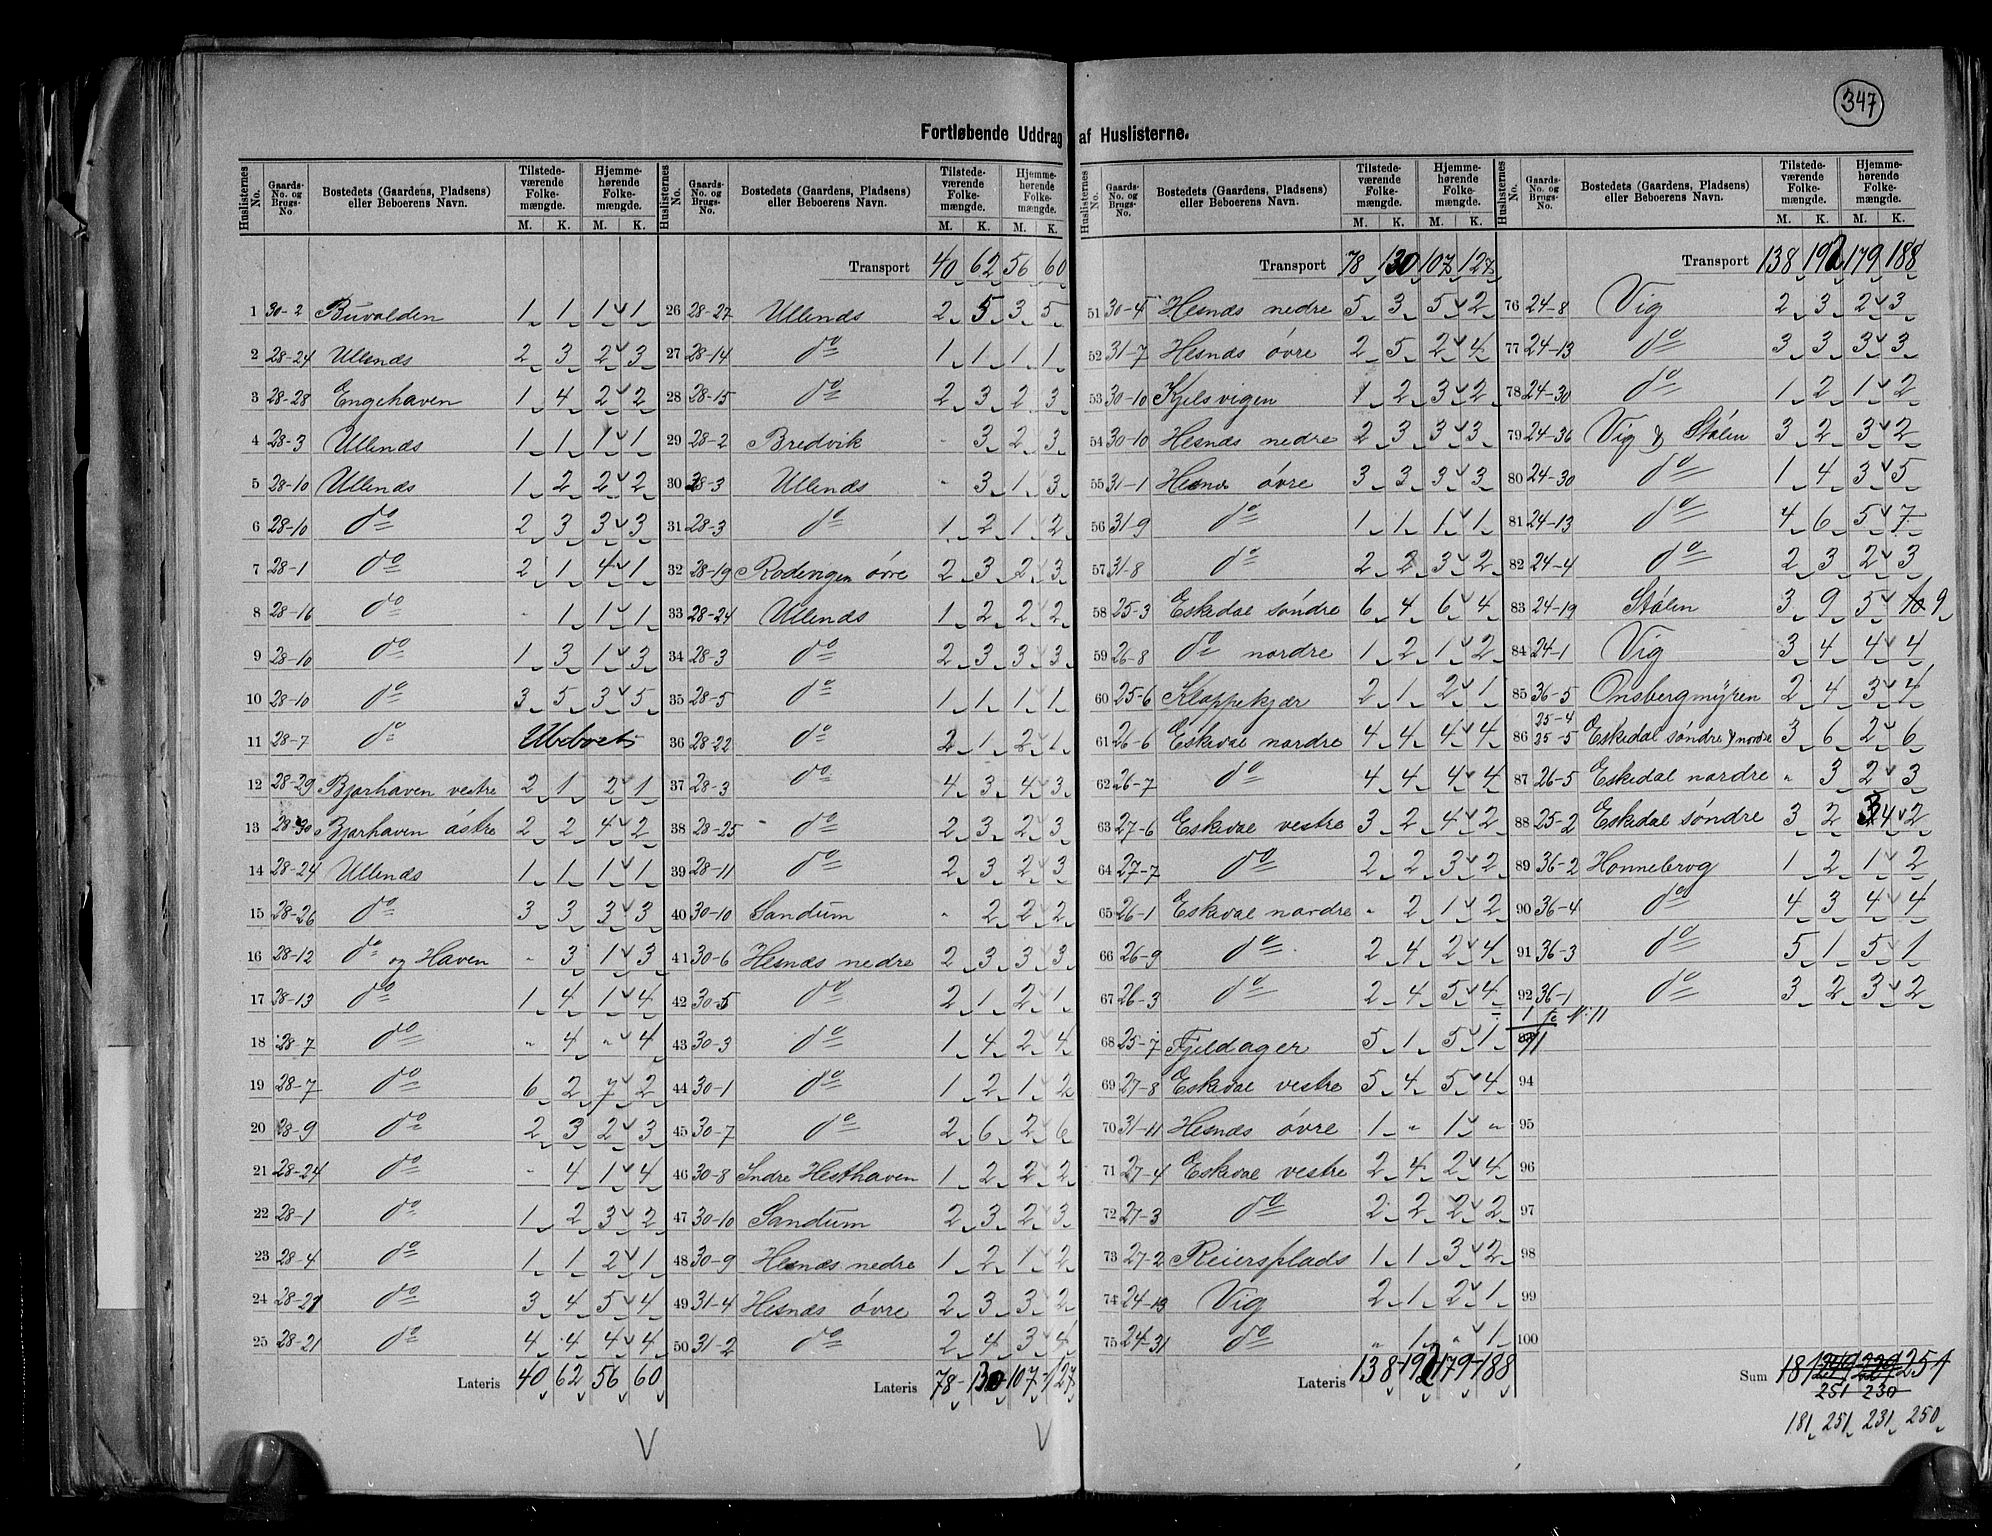 347
Fortløbende Uddrag af Huslisterne.
Huslisternes No. | Gaards-No. og Brugs-No. | Bostedets (Gaardens, Pladsens) eller Beboerens Navn. | Tilstedeværende Folkemængde. M. K. | Hjemmehørende Folkemængde. M. K.
1 30-2 Buvalden 1 1 1 1
2 28-24 Ullenæs 2 3 2 3
3 28-28 Engehaven 1 4 2 2
4 28-3 Ullenæs 1 1 1 1
5 28-10 Ullenæs 1 2 2 2
6 28-10 do 2 3 3 3
7 28-1 do 2 1 4 1
8 28-16 do - 1 1 1
9 28-10 do 1 3 1 3
10 28-10 do 3 5 3 5
11 28-7 do Ubeboet
12 28-29 Bjørhaven vestre 2 1 2 1
13 28-30 Bjørhaven østre 2 2 4 2
14 28-24 Ullenæs 1 1 1 1
15 28-26 do 3 3 3 3
16 28-12 do og Haven - 3 1 3
17 28-13 do 1 4 1 4
18 28-7 do " 4 " 4
19 28-7 do 6 2 7 2
20 28-9 do 2 3 2 3
21 28-24 do - 4 1 4
22 28-1 do 1 2 3 2
23 28-4 do 1 1 2 1
24 28-21 do 3 4 5 4
25 28-21 do 4 4 4 4
Lateris 40 62 56 60
Huslisternes No. | Gaards-No. og Brugs-No. | Bostedets (Gaardens, Pladsens) eller Beboerens Navn. | Tilstedeværende Folkemængde. M. K. | Hjemmehørende Folkemængde. M. K.
Transport 40 62 56 60
26 28-27 Ullenæs 2 5 3 5
27 28-14 do 1 1 1 1
28 28-15 do 2 3 2 3
29 28-2 Bredvik - 3 2 3
30 28-3 Ullenæs - 3 1 3
31 28-3 do 1 2 1 2
32 28-19 Rødengen øvre 2 3 2 3
33 28-24 Ullenæs 1 2 2 2
34 28-3 do 2 3 3 3
35 28-5 do 1 1 1 1
36 28-22 do 2 1 2 1
37 28-3 do 4 3 4 3
38 28-25 do 2 3 2 3
39 28-11 do 2 3 2 3
40 30-10 Sandum - 2 2 2
41 30-6 Hesnæs nedre 2 3 3 3
42 30-5 do 2 1 2 1
43 30-3 do 1 4 2 4
44 30-1 do 1 2 1 2
45 30-7 do 2 6 2 6
46 30-8 Indre Hesthaven 1 2 2 2
47 30-10 Sandum 2 3 2 3
48 30-9 Hesnæs nedre 1 2 1 2
49 31-4 Hesnæs øvre 2 3 3 2
50 31-2 do 2 4 3 4
Lateris 78 130 107 127
Huslisternes No. | Gaards-No. og Brugs-No. | Bostedets (Gaardens, Pladsens) eller Beboerens Navn. | Tilstedeværende Folkemængde. M. K. | Hjemmehørende Folkemængde. M. K.
Transport 78 130 107 127
51 30-4 Hesnæs nedre 5 3 5 2
52 31-7 Hesnæs øvre 2 5 2 4
53 30-10 Kjelsvigen 1 2 3 2
54 30-10 Hesnæs nedre 2 3 3 3
55 31-1 Hesnæs øvre 3 3 3 3
56 31-9 do 1 1 1 1
57 31-8 do 2 2 3 2
58 25-3 Eskedal søndre 6 4 6 4
59 26-8 do nordre 1 2 1 2
60 25-6 Kloppekjær 2 1 2 1
61 26-6 Eskedal nordre 4 4 4 4
62 26-7 do 4 4 4 4
63 27-6 Eskedal vestre 3 2 4 2
64 27-7 do 2 2 3 2
65 26-1 Eskedal nordre " 2 1 2
66 26-9 do 2 4 2 4
67 26-3 do 2 4 5 4
68 25-7 Fjeldager 5 1 5 1
69 27-8 Eskedal vestre 5 4 5 4
70 31-11 Hesnæs øvre 1 " 1 "
71 27-4 Eskedal vestre 2 4 2 4
72 27-3 do 2 2 2 2
73 27-2 Reiersplads 1 1 3 2
74 24-13 Vig 2 1 2 1
75 24-31 do " 1 " 1
Lateris 138 192 179 188
Huslisternes No. | Gaards-No. og Brugs-No. | Bostedets (Gaardens, Pladsens) eller Beboerens Navn. | Tilstedeværende Folkemængde. M. K. | Hjemmehørende Folkemængde. M. K.
Transport 138 192 179 188
76 24-8 Vig 2 3 2 3
77 24-13 do 3 3 3 3
78 24-30 do 1 2 1 2
79 24-36 Vig & Stølen 3 2 3 2
80 24-30 do 1 4 3 5
81 24-13 do 4 6 5 7
82 24-4 do 2 3 2 3
83 24-19 Stølen 3 9 5 10 9
84 24-1 Vig 3 4 4 4
85 36-5 Onsbergmyren 2 4 3 4
86 25-4 25-5 Eskedal søndre & nordre 3 6 2 6
87 26-5 Eskedal nordre " 3 2 3
88 25-2 Eskedal søndre 3 2 3 4 2
89 36-2 Honnebrog 1 2 1 2
90 36-4 do 4 3 4 4
91 36-3 do 5 1 5 1
92 36-1 do 3 2 3 2
1 fo N: 11
93 91
94
95
96
97
98
99
100
Sum 181 249 229 251
251 230
181 251 231 250